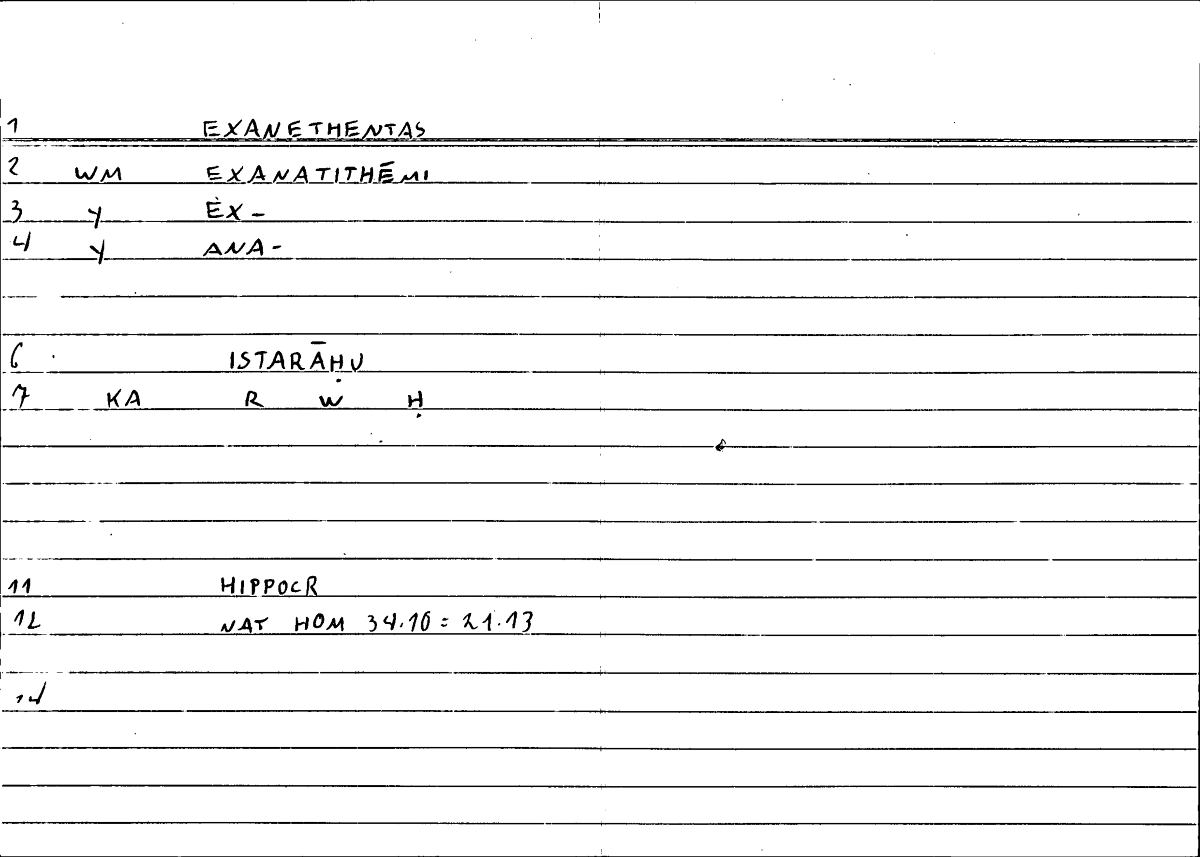 1 EXANETHENTAS
2 WM EXANATITHĒMI
3 Y EX-
4 Y ANA-
6 ISTARĀḤU
7 KA R W Ḥ
11 HIPPOCR
12 NAT HOM 34.10 = 21.13
14